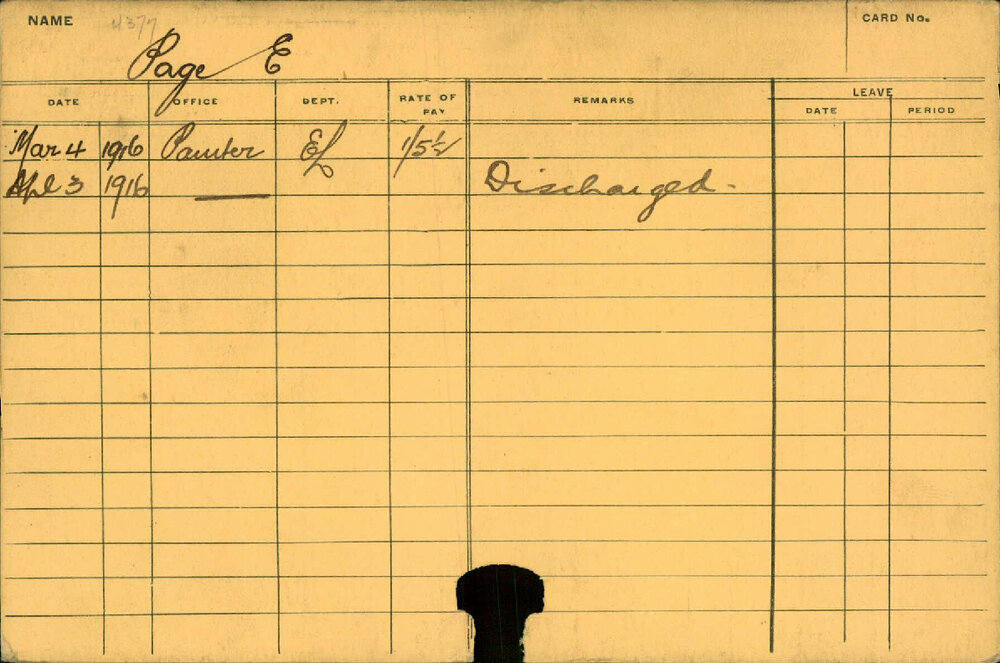 NAME 4377 CARD No.
Page E
DATE OFFICE DEPT. RATE OF PAY REMARKS LEAVE
DATE PERIOD
Mar 4 1916 Painter EL 1/5½
Apl 3 1916 — Discharged -